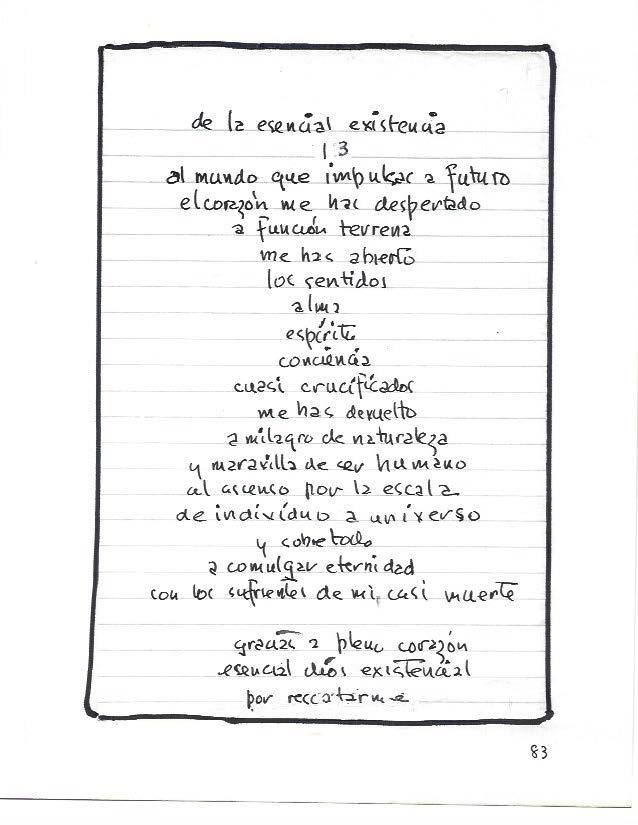 de la esencial existencia
13
al mundo que impulsas a futuro
el corazón me has despertado
a función terrena
me has abierto
los sentidos
alma
espíritu
conciencia
cuasi crucificados
me has devuelto
a milagro de naturaleza
y maravilla de ser humano
al ascenso por la escala
de indivíduo a universo
y sobre todo
a comulgar eternidad
con los sufrientes de mi casi muerte
gracias a pleno corazón
esencial dios existencial
por rescatarme
83